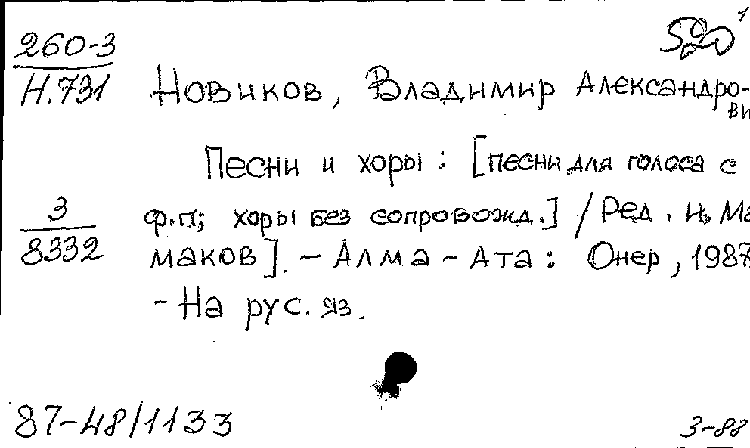 260-3
Н.731 Новиков, Владимир Александро-
ви
Песни и хоры : [песни для голоса с
3
8332
ф.п; хоры без сопровожд.] / Ред. Н. Ма
маков]. - Алма - Ата : Онер, 1987
- На рус. яз.
87-48/1133
3-88